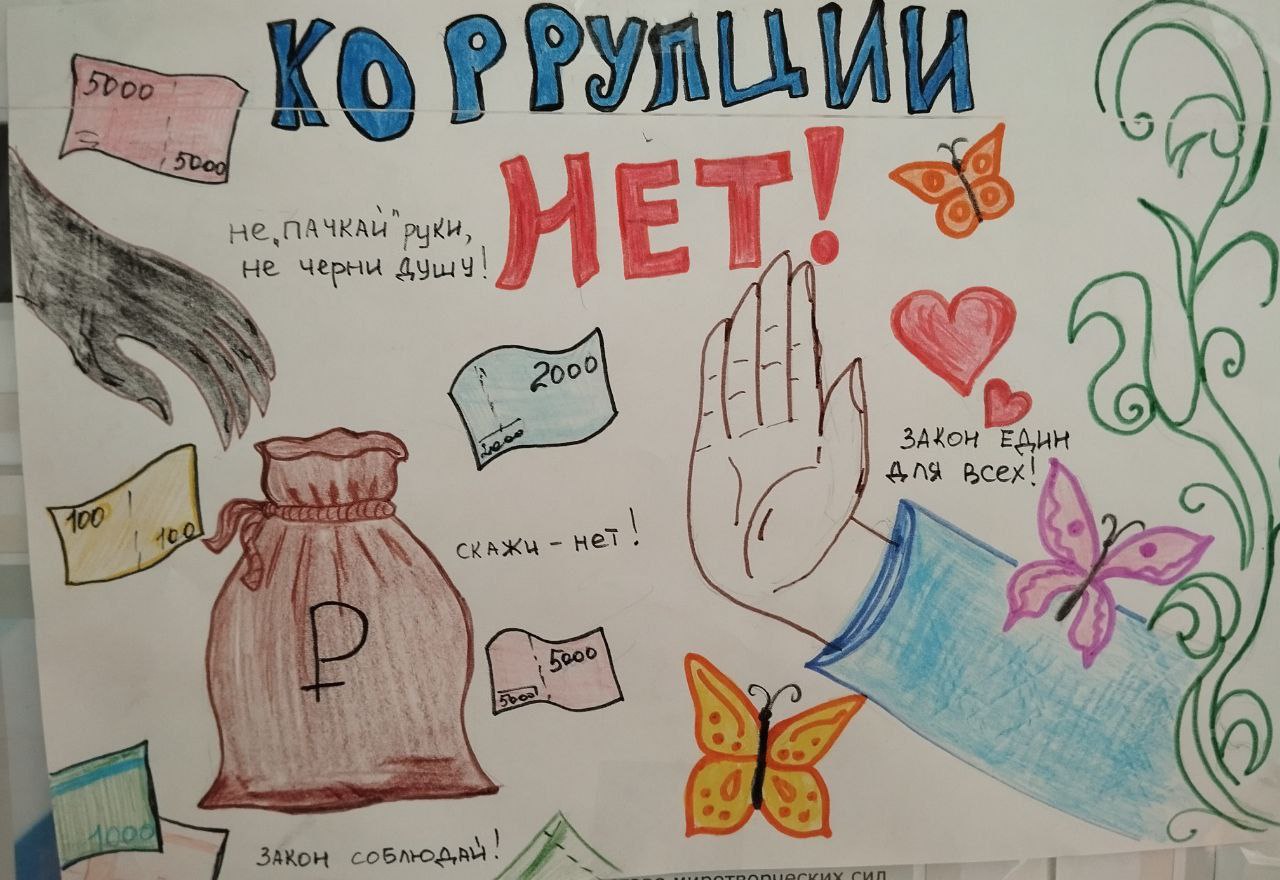 КОРРУПЦИИ
НЕТ!
5000
5000
не „ПАЧКАЙ" руки,
не черни душу!
2000
2000
ЗАКОН ЕДИН
для всех!
100
100
скажи - нет!
₽
5000
5000
1000
ЗАКОН СОБЛЮДАЙ!
миротворческих сил